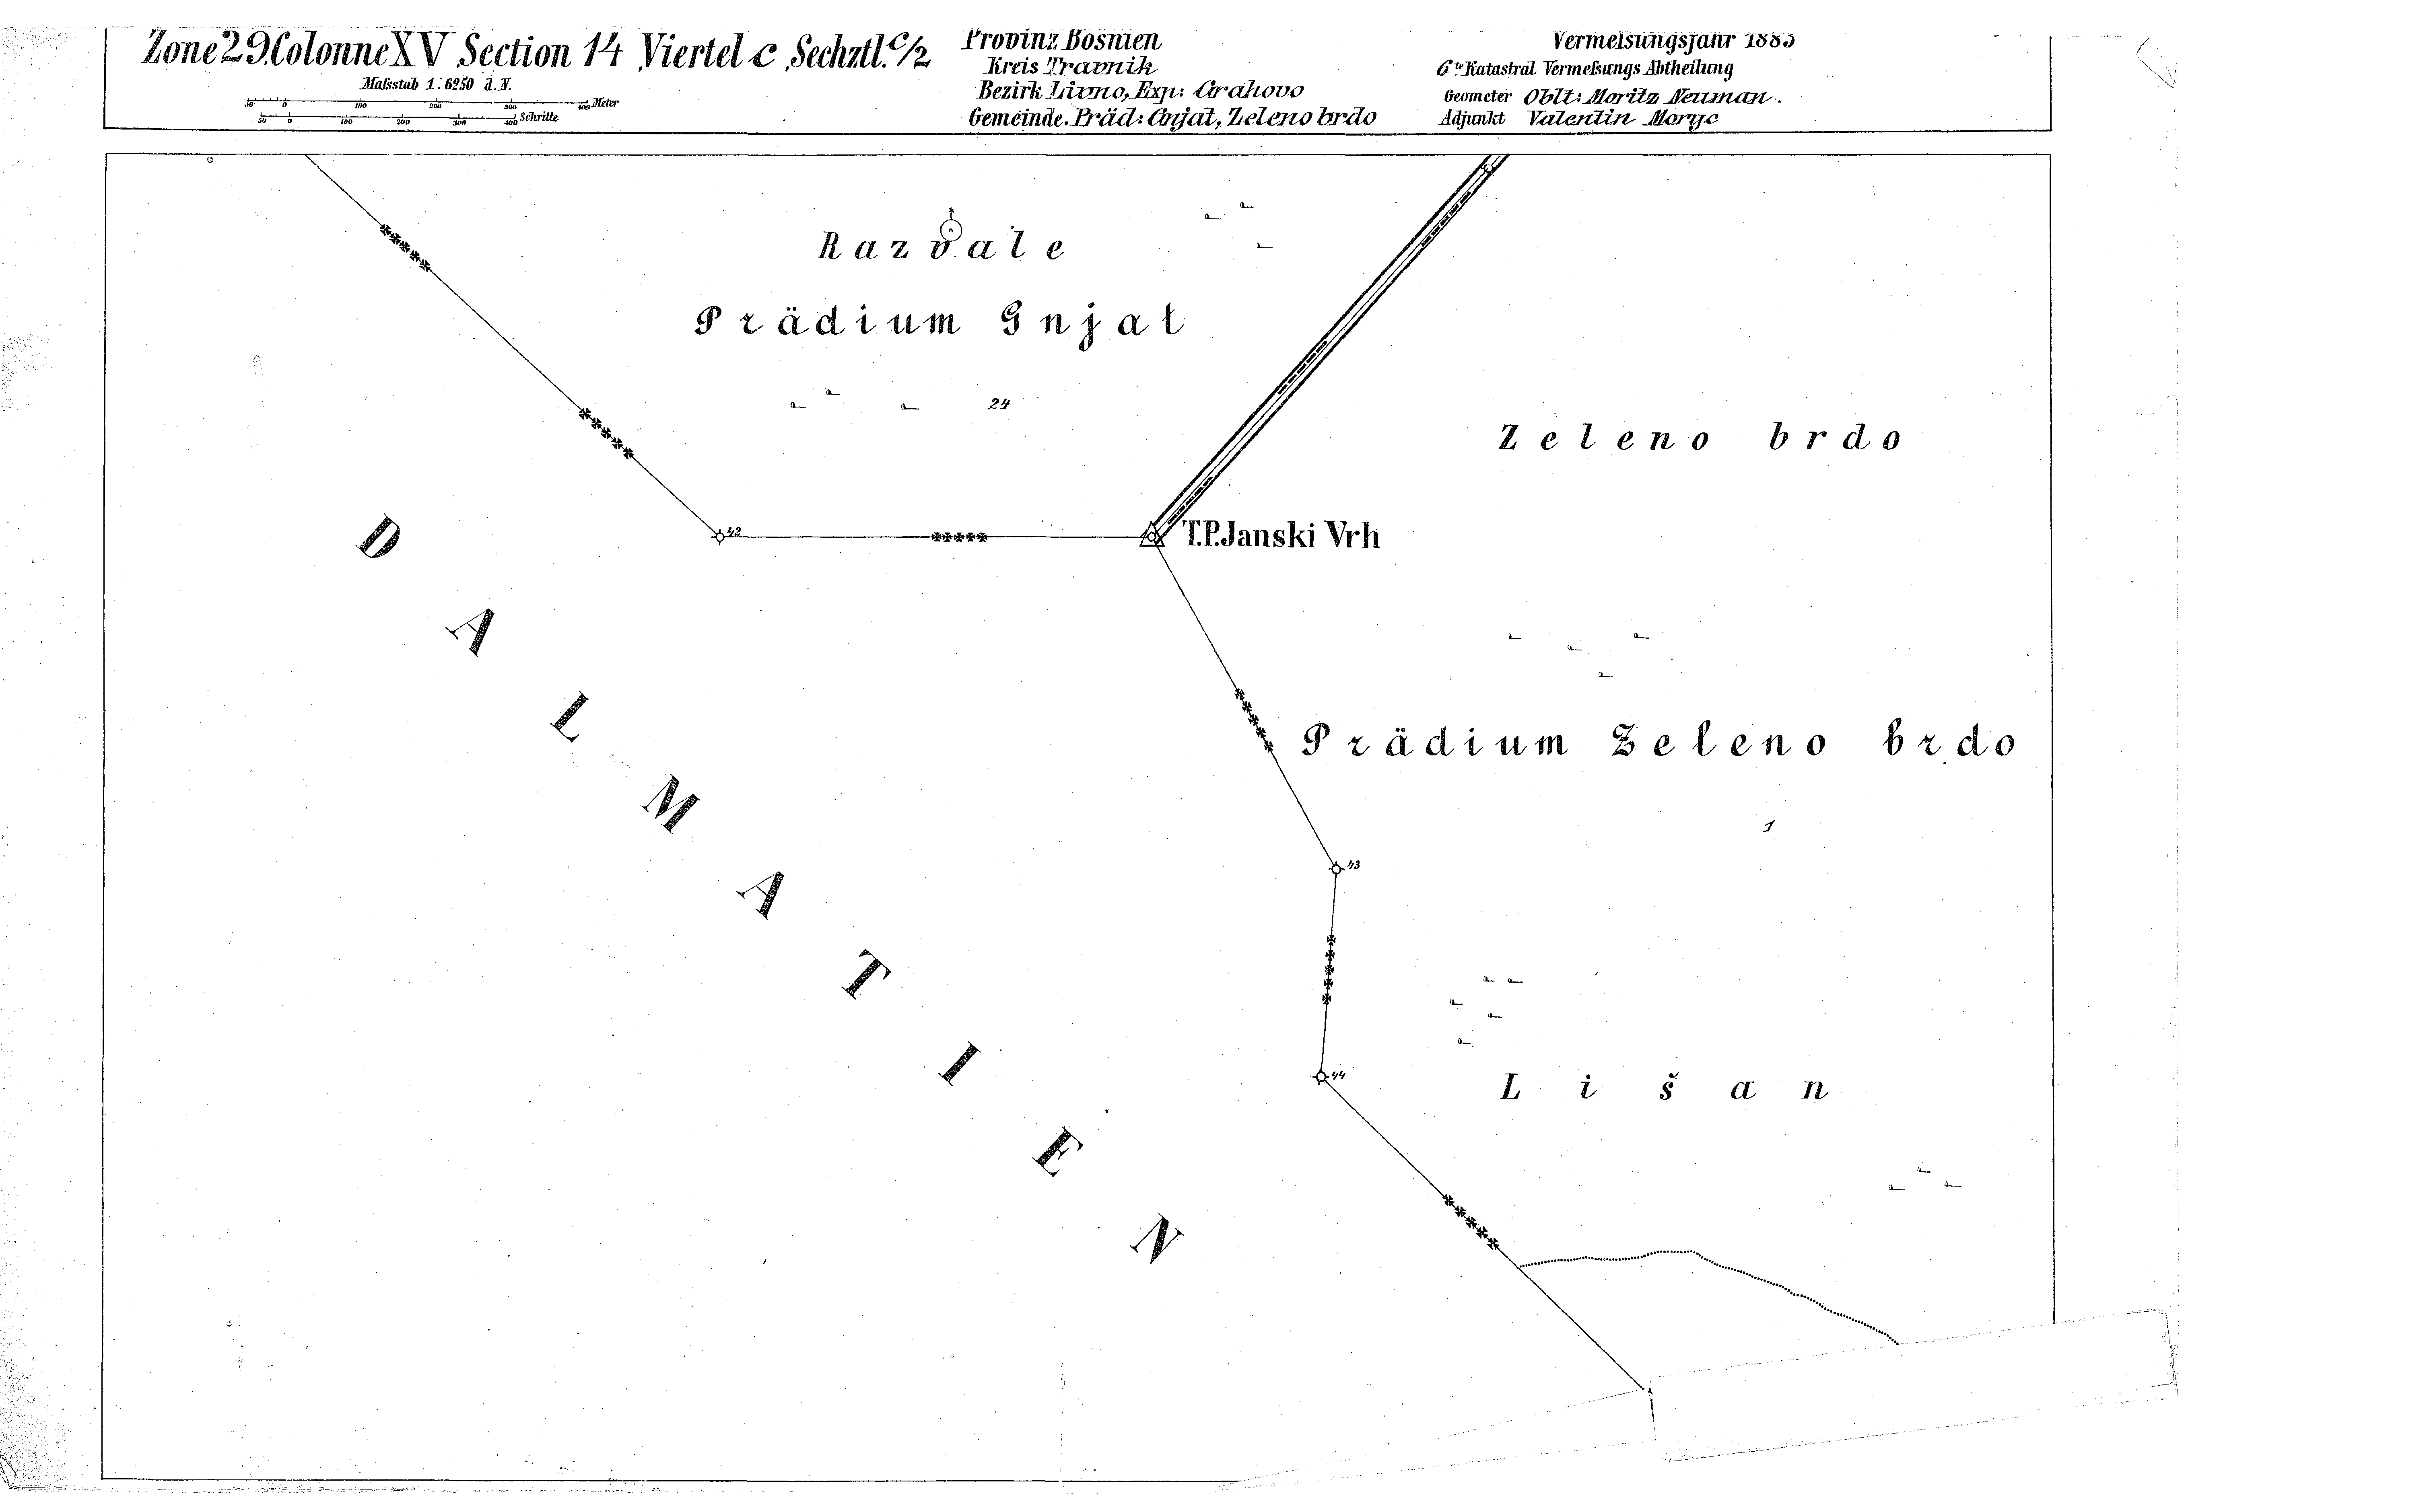 Zone 29. Colonne XV Section 14 Viertel c Sechztl. c/2
Maſsstab 1:6250 d. N.
50 0 100 200 300 400 Meter
50 0 100 200 300 400 Schritte
Provinz Bosnien
Kreis Travnik
Bezirk Livno, Exp: Grahovo
Gemeinde. Präd: Gnjat, Zeleno brdo
Vermeſsungsjahr 1885
6te Katastral Vermeſsungs Abtheilung
Geometer Oblt: Moritz Neuman.
Adjunkt Valentin Moryc
Razvale
Prädium Gnjat
24
Zeleno brdo
42
T.P. Janski Vrh
DALMATIEN
Prädium Zeleno brdo
1
43
44
Lišan